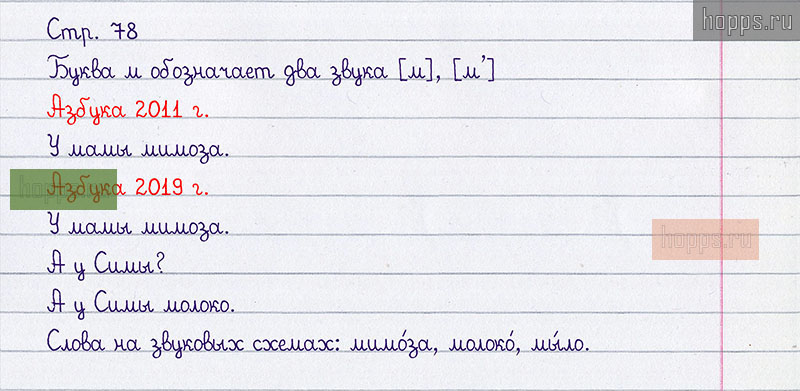 hopps.ru
Стр. 78
Буква м обозначает два звука [м], [м’]
Азбука 2011 г.
У мамы мимоза.
hopps.ru
Азбука 2019 г.
У мамы мимоза.
hopps.ru
А у Симы?
А у Симы молоко.
Слова на звуковых схемах: мимо́за, молоко́, мы́ло.